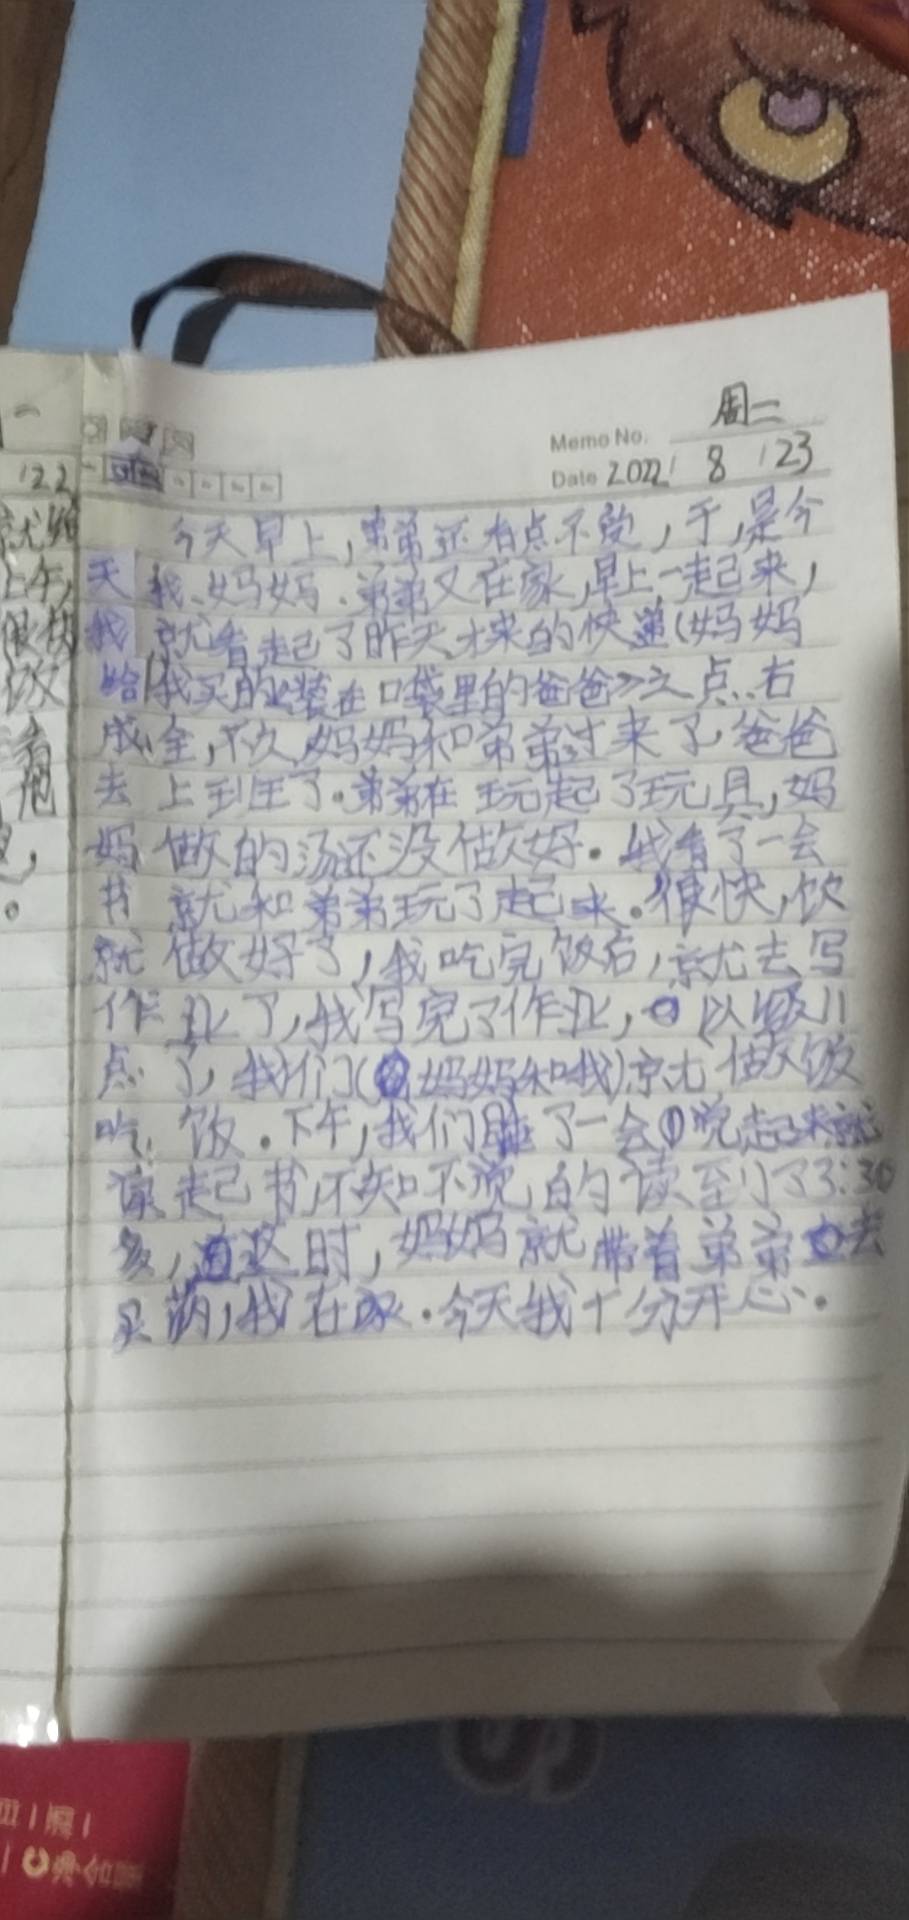 周二
Memo No.
Date 2022 8 23
22
今天早上,弟弟还有点不爱,于是今
天我、妈妈、弟弟又在家,早上一起来,
我就看起了昨天才来的快递(妈妈
给我买的《装在口袋里的爸爸》之点石
成金,不久,妈妈和弟弟过来了,爸爸
去上班了。弟弟在玩起了玩具,妈
妈做的汤还没做好。我看了一会
书就和弟弟玩了起来。很快,饮
就做好了,我吃完饭后,就去写
作业了,我写完了作业,以
点了,我们(妈妈和我)就做饭
吃饭。下午,我们睡了一会觉起来就
读起书,不知不觉的读到了3:30
多,这时,妈妈就带着弟弟去
买药,我在家。今天我十分开心。